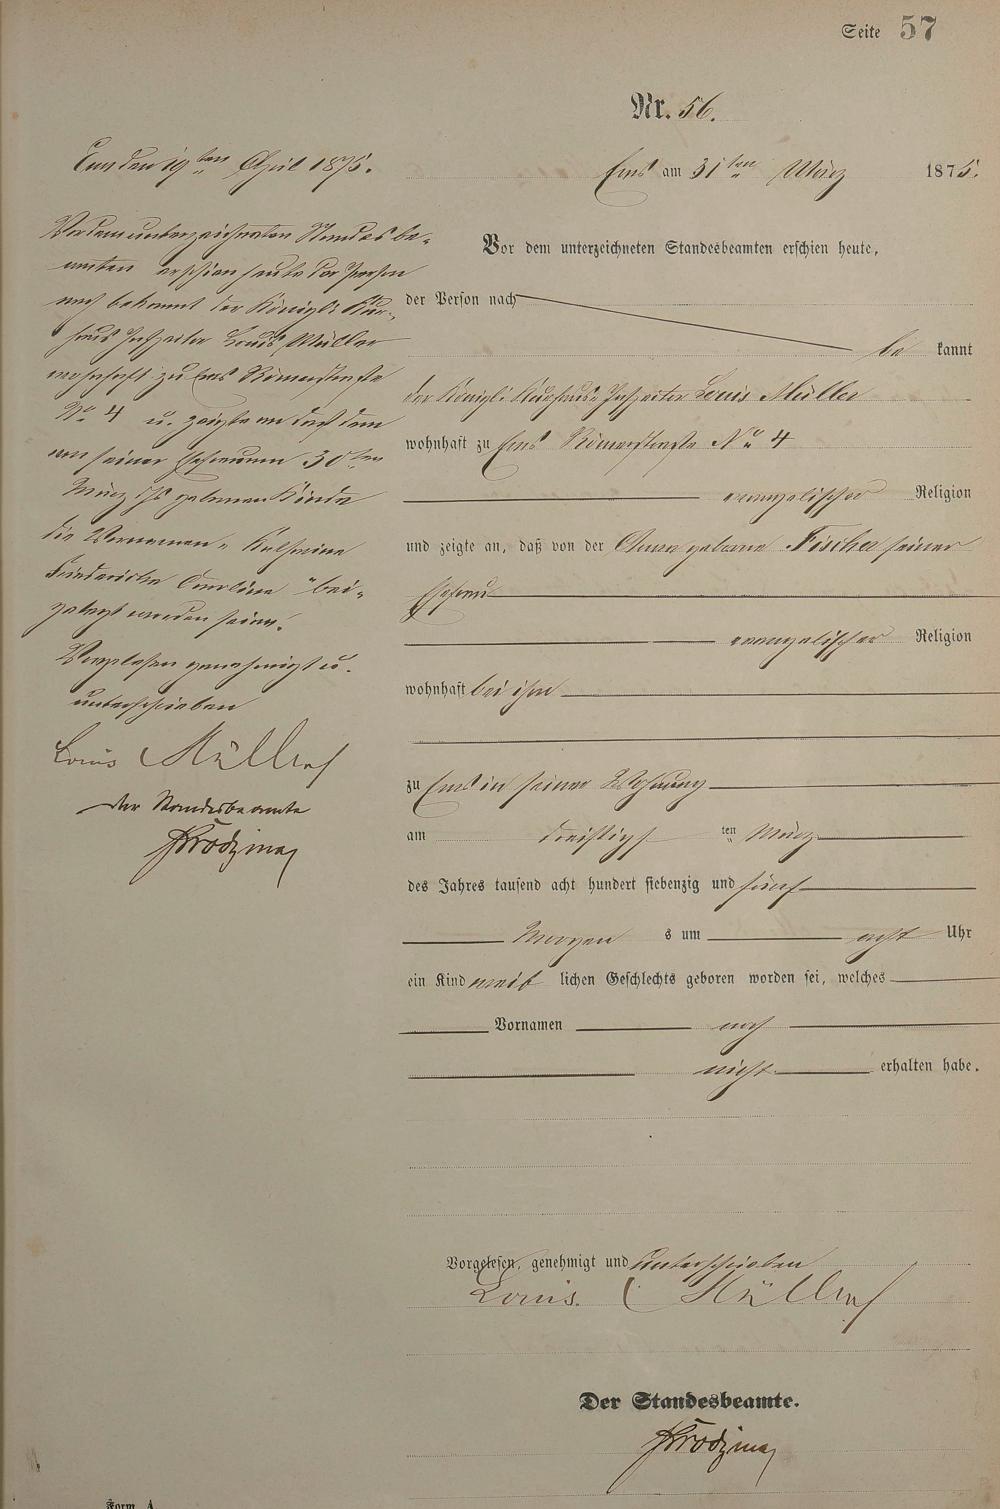 Seite 57
Nr. 56.
Ems den 19ten April 1875.
Vor dem unterzeichneten Standesbe-
amten erschien heute der Person
nach bekannt der Königl. Kur-
haus Louis Müller
wohnhaft zu Ems Römerstraße
No 4 u. zeigte an daß dem
von seiner Ehefrau am 30ten
März geborenen Kinde
die Vornamen "
Friedericke Caroline" bei-
gelegt worden seien.
Vorgelesen genehmigt u.
unterschrieben
Louis Müller
der Standesbeamte
Ems am 31ten März 1875.
Vor dem unterzeichneten Standesbeamten erschien heute,
der Person nach
be kannt
der Königl. Kurhaus Louis Müller
wohnhaft zu Ems Römerstraße No 4
evangelischer Religion
und zeigte an, daß von der Anna geborene Fischer seiner
Ehefrau
evangelischer Religion
wohnhaft bei ihm
zu Ems in seiner Wohnung
am dreißigst ten März
des Jahres tausend acht hundert siebenzig und fünf
Morgen s um acht Uhr
ein Kind weib lichen Geschlechts geboren worden sei, welches
Vornamen noch
nicht erhalten habe.
Vorgelesen, genehmigt und unterschrieben
Louis Müller
Der Standesbeamte.
Form. A